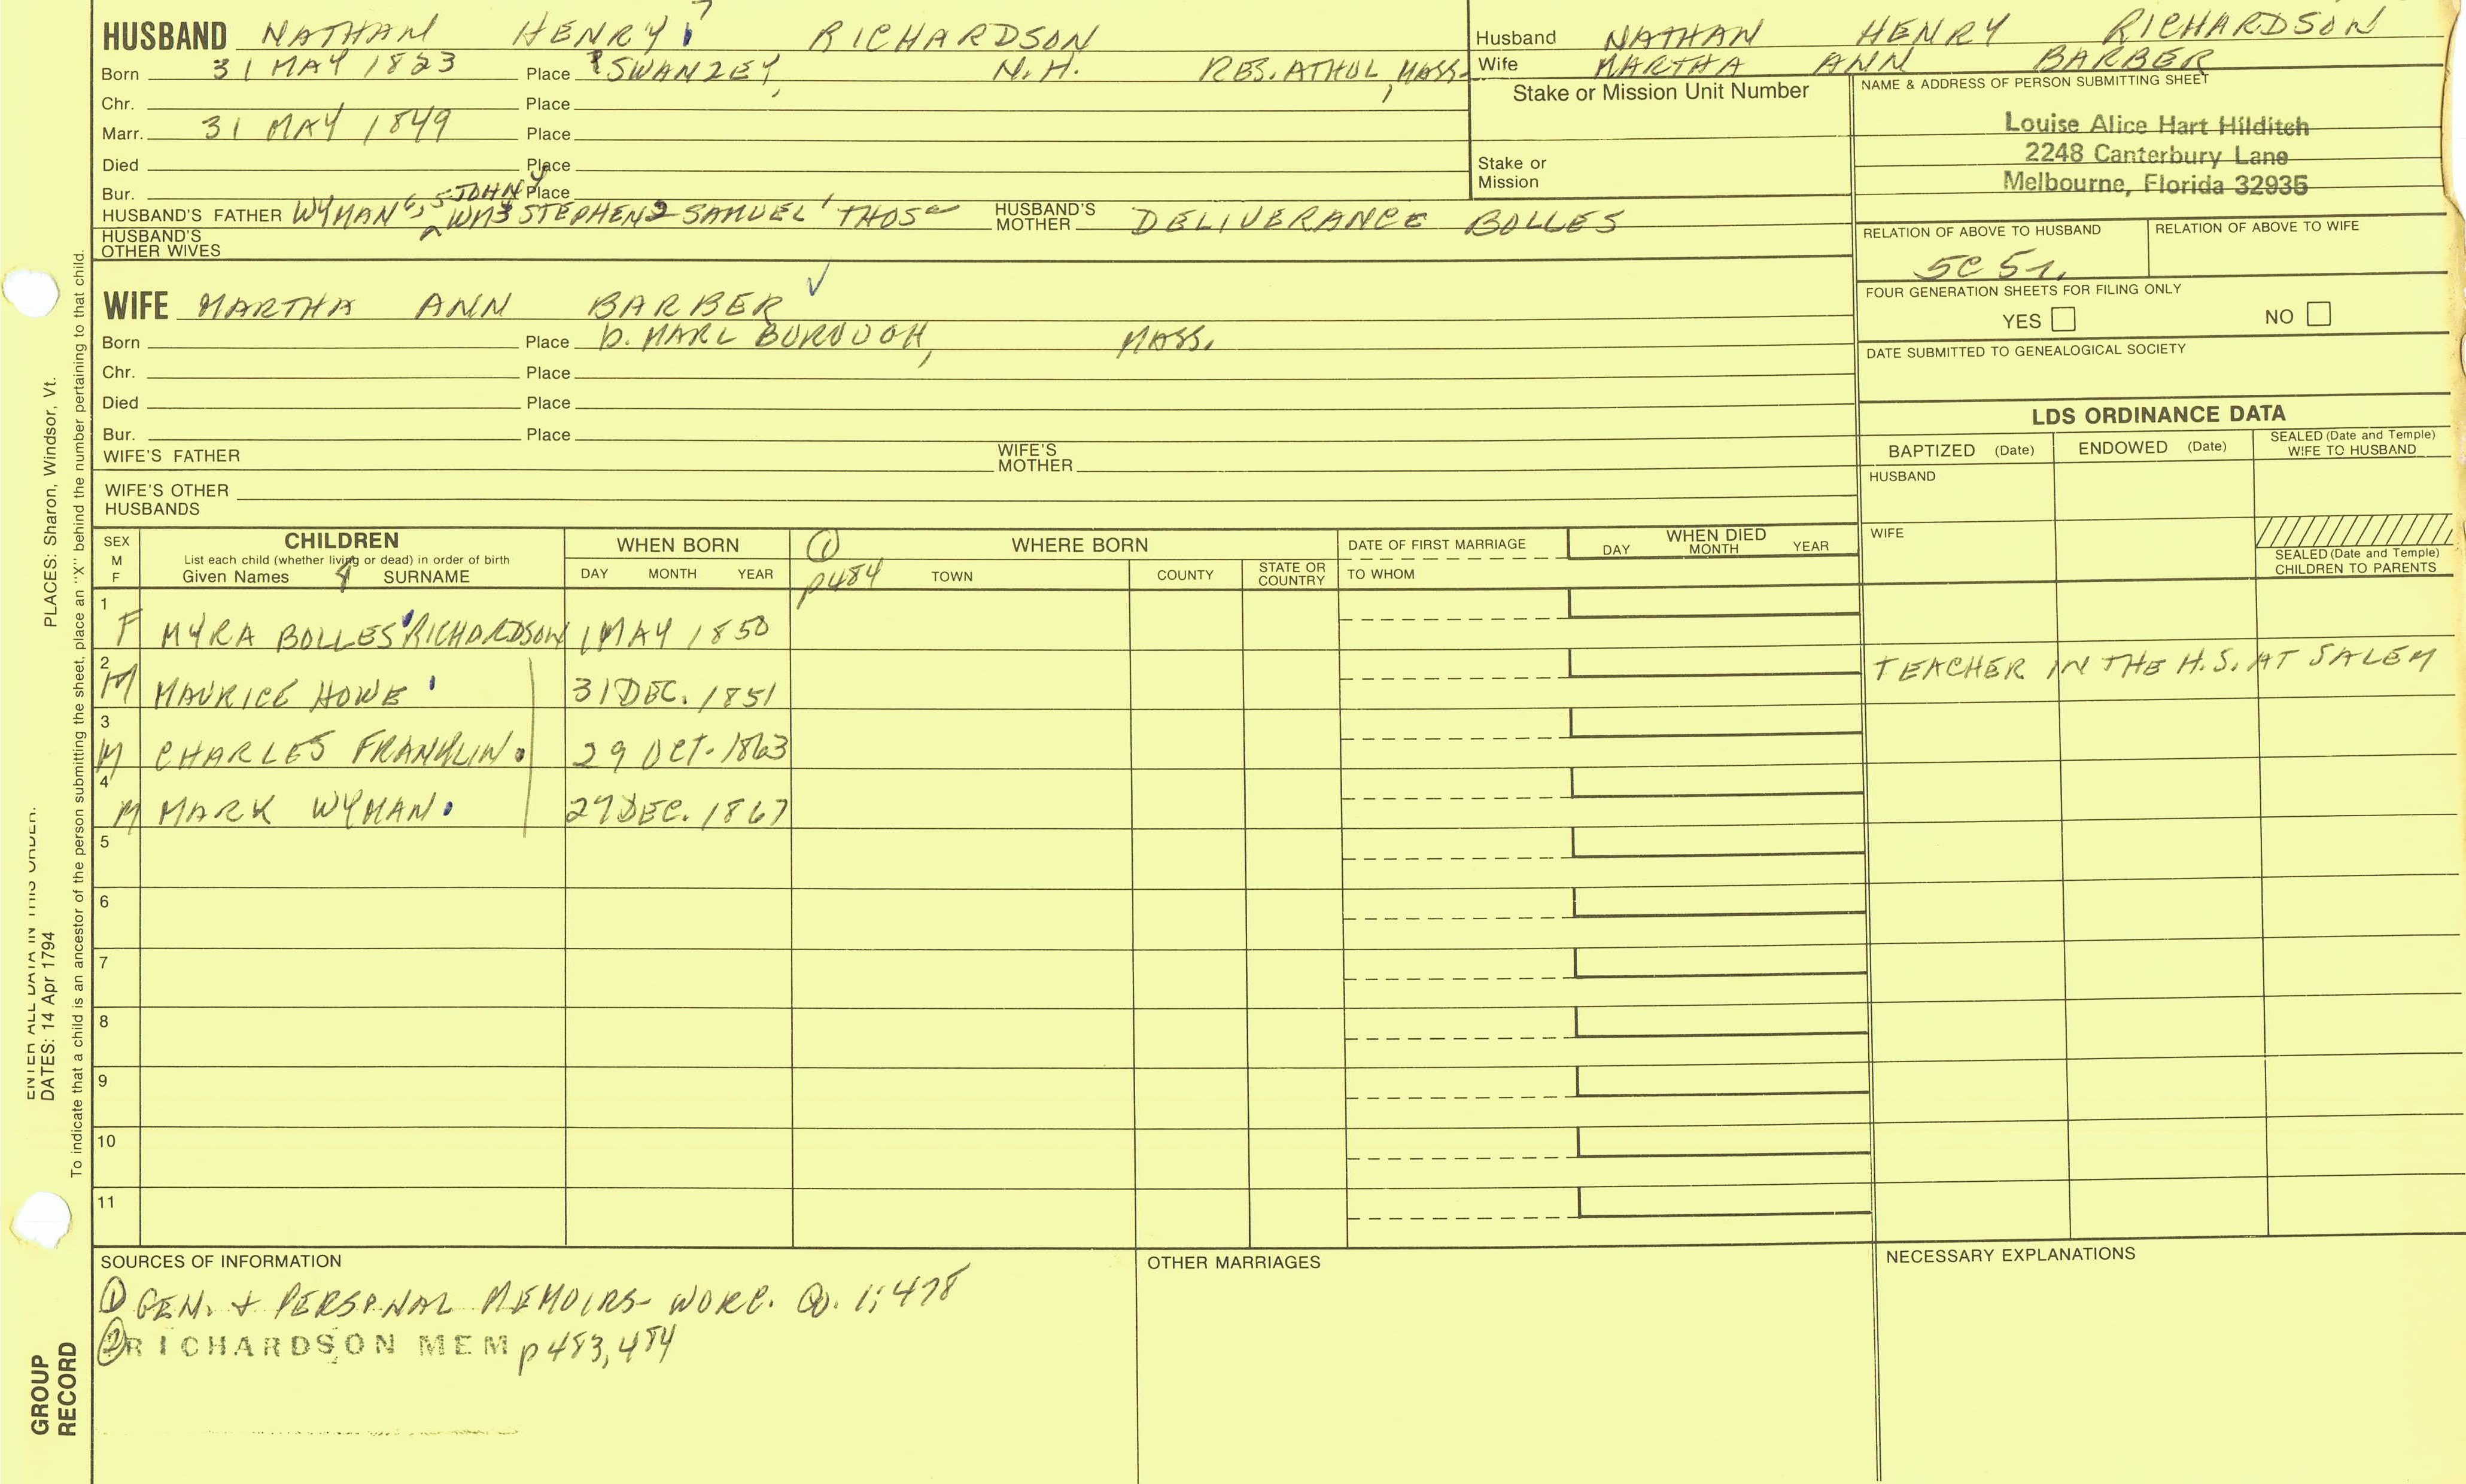 HUSBAND NATHAN HENRY 7 RICHARDSON
Born 31 MAY 1823 Place SWANZEY, N.H. RES. ATHOL, MASS.
Chr. Place
Marr. 31 MAY 1849 Place
Died Place
Bur. Place
HUSBAND'S FATHER WYMAN 6, 5 JOHN 4 WM 3 STEPHEN 2 SAMUEL 1 THOS HUSBAND'S MOTHER DELIVERANCE BOLLES
HUSBAND'S OTHER WIVES
Husband NATHAN HENRY RICHARDSON
Wife MARTHA ANN BARBER
Stake or Mission Unit Number
Stake or Mission
NAME & ADDRESS OF PERSON SUBMITTING SHEET
Louise Alice Hart Hilditch
2248 Canterbury Lane
Melbourne, Florida 32935
RELATION OF ABOVE TO HUSBAND RELATION OF ABOVE TO WIFE
5C 5r.
FOUR GENERATION SHEETS FOR FILING ONLY
YES NO
DATE SUBMITTED TO GENEALOGICAL SOCIETY
WIFE MARTHA ANN BARBER
Born Place b. MARLBOROUGH, MASS.
Chr. Place
Died Place
Bur. Place
WIFE'S FATHER WIFE'S MOTHER
WIFE'S OTHER HUSBANDS
LDS ORDINANCE DATA
BAPTIZED (Date) ENDOWED (Date) SEALED (Date and Temple) WIFE TO HUSBAND
HUSBAND
WIFE
SEALED (Date and Temple) CHILDREN TO PARENTS
SEX M F
CHILDREN
List each child (whether living or dead) in order of birth
Given Names SURNAME
WHEN BORN
DAY MONTH YEAR
① p484
WHERE BORN
TOWN COUNTY STATE OR COUNTRY
DATE OF FIRST MARRIAGE
TO WHOM
WHEN DIED
DAY MONTH YEAR
1 F MYRA BOLLES RICHARDSON 1 MAY 1850
2 M MAURICE HOWE 31 DEC. 1851 TEACHER IN THE H.S. AT SALEM
3 M CHARLES FRANKLIN 29 OCT. 1863
4 M MARK WYMAN 27 DEC. 1867
5
6
7
8
9
10
11
SOURCES OF INFORMATION
① GEN. + PERSONAL MEMOIRS - WORC. CO. 1; 478
② RICHARDSON MEM p 483, 484
OTHER MARRIAGES
NECESSARY EXPLANATIONS
ENTER ALL DATA IN THIS ORDER.
DATES: 14 Apr 1794 PLACES: Sharon, Windsor, Vt.
To indicate that a child is an ancestor of the person submitting the sheet, place an "X" behind the number pertaining to that child.
GROUP RECORD